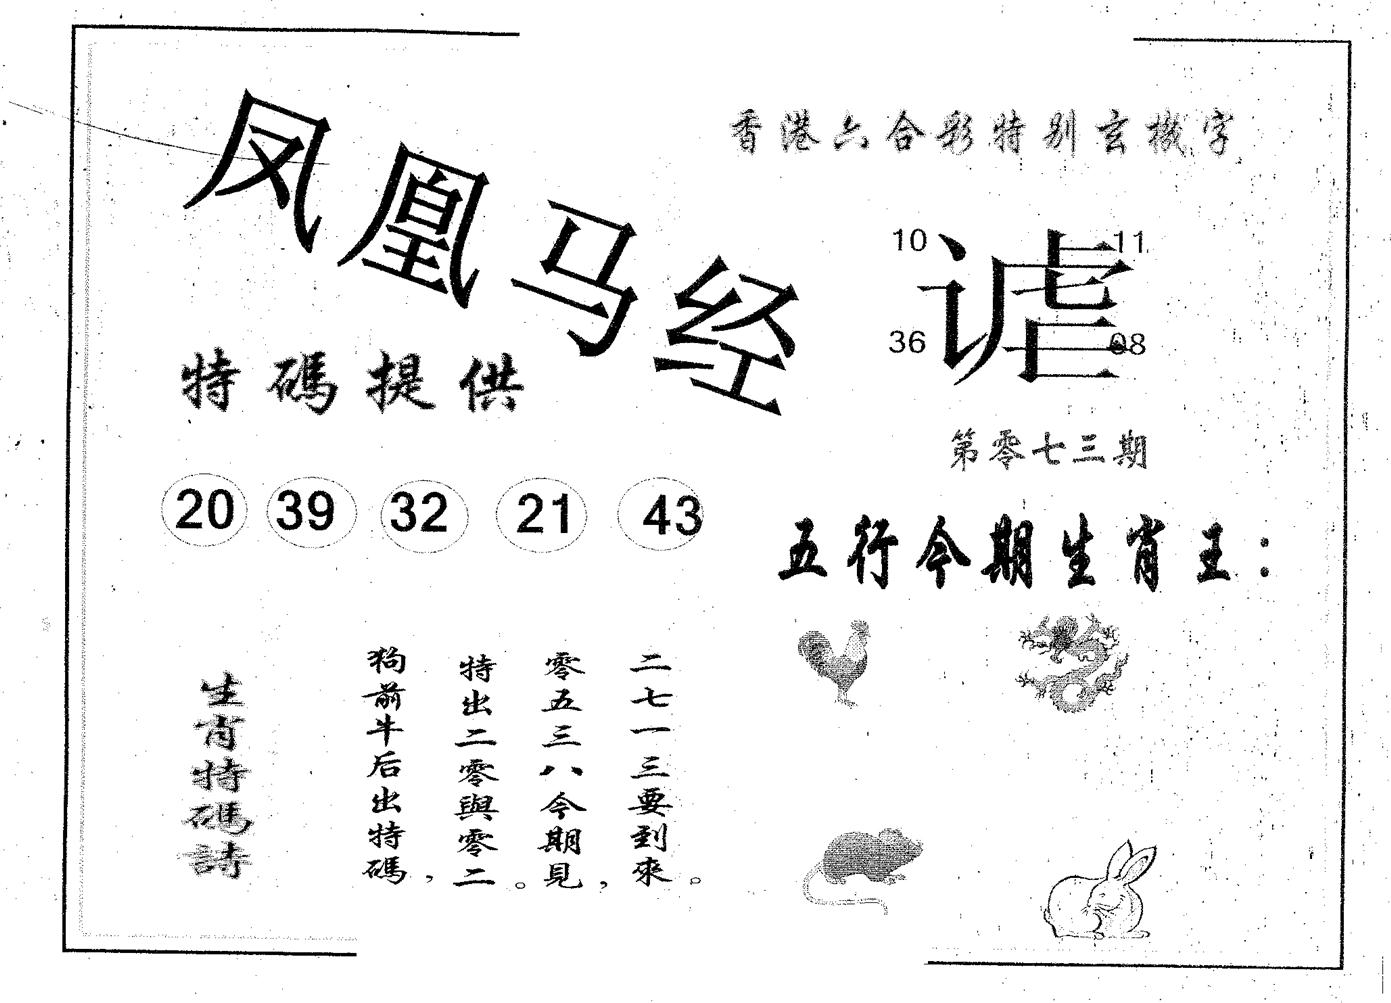 凤凰马经
香港六合彩特别玄機字
10 11
谑
36 08
第零七三期
特碼提供
20 39 32 21 43
五行今期生肖王：
生肖特碼詩
狗前牛后出特碼，
特出二零與零二。
零五三八今期見，
二七一三要到來。